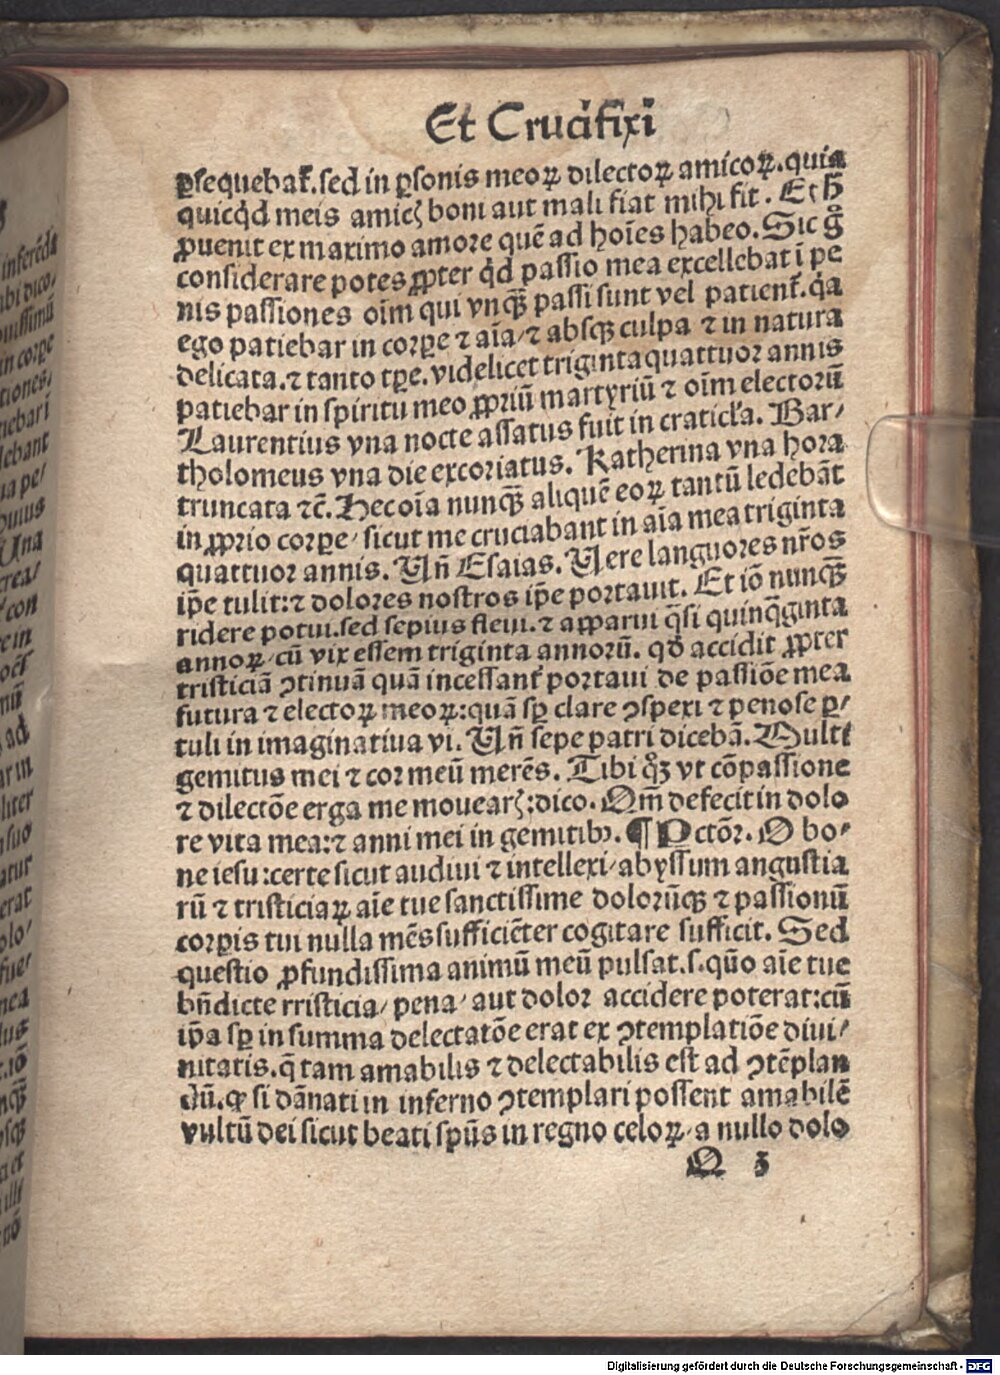 Et Crucifixi
ꝑsequebat᷑. sed in ꝑsonis meoꝝ dilectoꝝ amicoꝝ. quia
quicq̇d meis amicꝭ boni aut mali fiat mihi fit. Et h̄
ꝓuenit ex maximo amore quē ad hoīes habeo. Sic g̊
considerare potes ꝓpter q̇d passio mea excellebat ī pe
nis passiones oīm qui vnqꝫ passi sunt vel patient᷑. q̇a
ego patiebar in corꝑe ⁊ aīa/ ⁊ absqꝫ culpa ⁊ in natura
delicata. ⁊ tanto tꝑe. videlicet triginta quattuor annis
patiebar in spiritu meo ꝓpriū martyriū ⁊ oīm electorū
Laurentius vna nocte assatus fuit in craticl'a. Bar/
tholomeus vna die excoriatus. Katherina vna hora
truncata ⁊c̄. Hec oīa nunqꝫ aliquē eoꝝ tantū ledebāt
in ꝓprio corꝑe/ sicut me cruciabant in aīa mea triginta
quattuor annis. Vn̄ Esaias. Vere languores nr̄os
ip̄e tulit: ⁊ dolores nostros ip̄e portauit. Et iō nunqꝫ
ridere potui. sed sepius fleui. ⁊ apparui q̄si quinq̄ginta
annoꝝ cū vix essem triginta annorū. qd̄ accidit ꝓpter
tristiciā ꝯtinuā quā incessant᷑ portaui de passiōe mea
futura ⁊ electoꝝ meoꝝ: quā sꝑ clare ꝯspexi ⁊ penose ꝑ/
tuli in imaginatiua vi. Vn̄ sepe patri dicebā. Multi
gemitus mei ⁊ cor meū merēs. Tibi qꝫ vt cōpassione
⁊ dilectōe erga me mouearꝭ: dico. Om̄ defecit in dolo
re vita mea: ⁊ anni mei in gemitibꝰ. ¶ Pctōr. O bo/
ne iesu: certe sicut audiui ⁊ intellexi/ abyssum angustia
rū ⁊ tristiciaꝝ aīe tue sanctissime dolorūqꝫ ⁊ passionū
corꝑis tui nulla mēs sufficiēter cogitare sufficit. Sed
questio ꝓfundissima animū meū pulsat. s. quō aīe tue
bn̄dicte rristicia/ pena/ aut dolor accidere poterat: cū
ip̄a sꝑ in summa delectatōe erat ex ꝯtemplatiōe diui/
nitatis. q̄ tam amabilis ⁊ delectabilis est ad ꝯtēplan
dū. ꝙ si dānati in inferno ꝯtemplari possent amabilē
vultū dei sicut beati sp̄us in regno celoꝝ. a nullo dolo
O 3
Digitalisierung gefördert durch die Deutsche Forschungsgemeinschaft - DFG